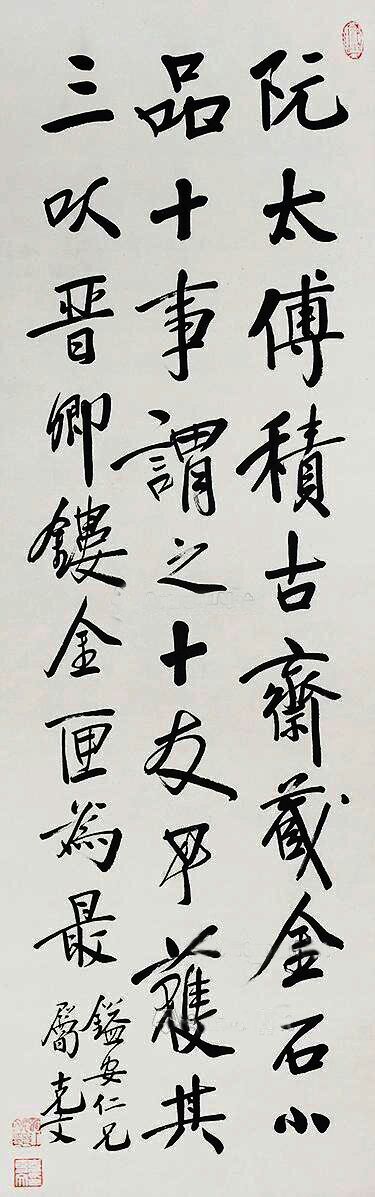 阮太傅積古齋藏金石小
品十事謂之十友予獲其
三以晉卿鏤金匣為最
鎰安仁兄
屬 克文